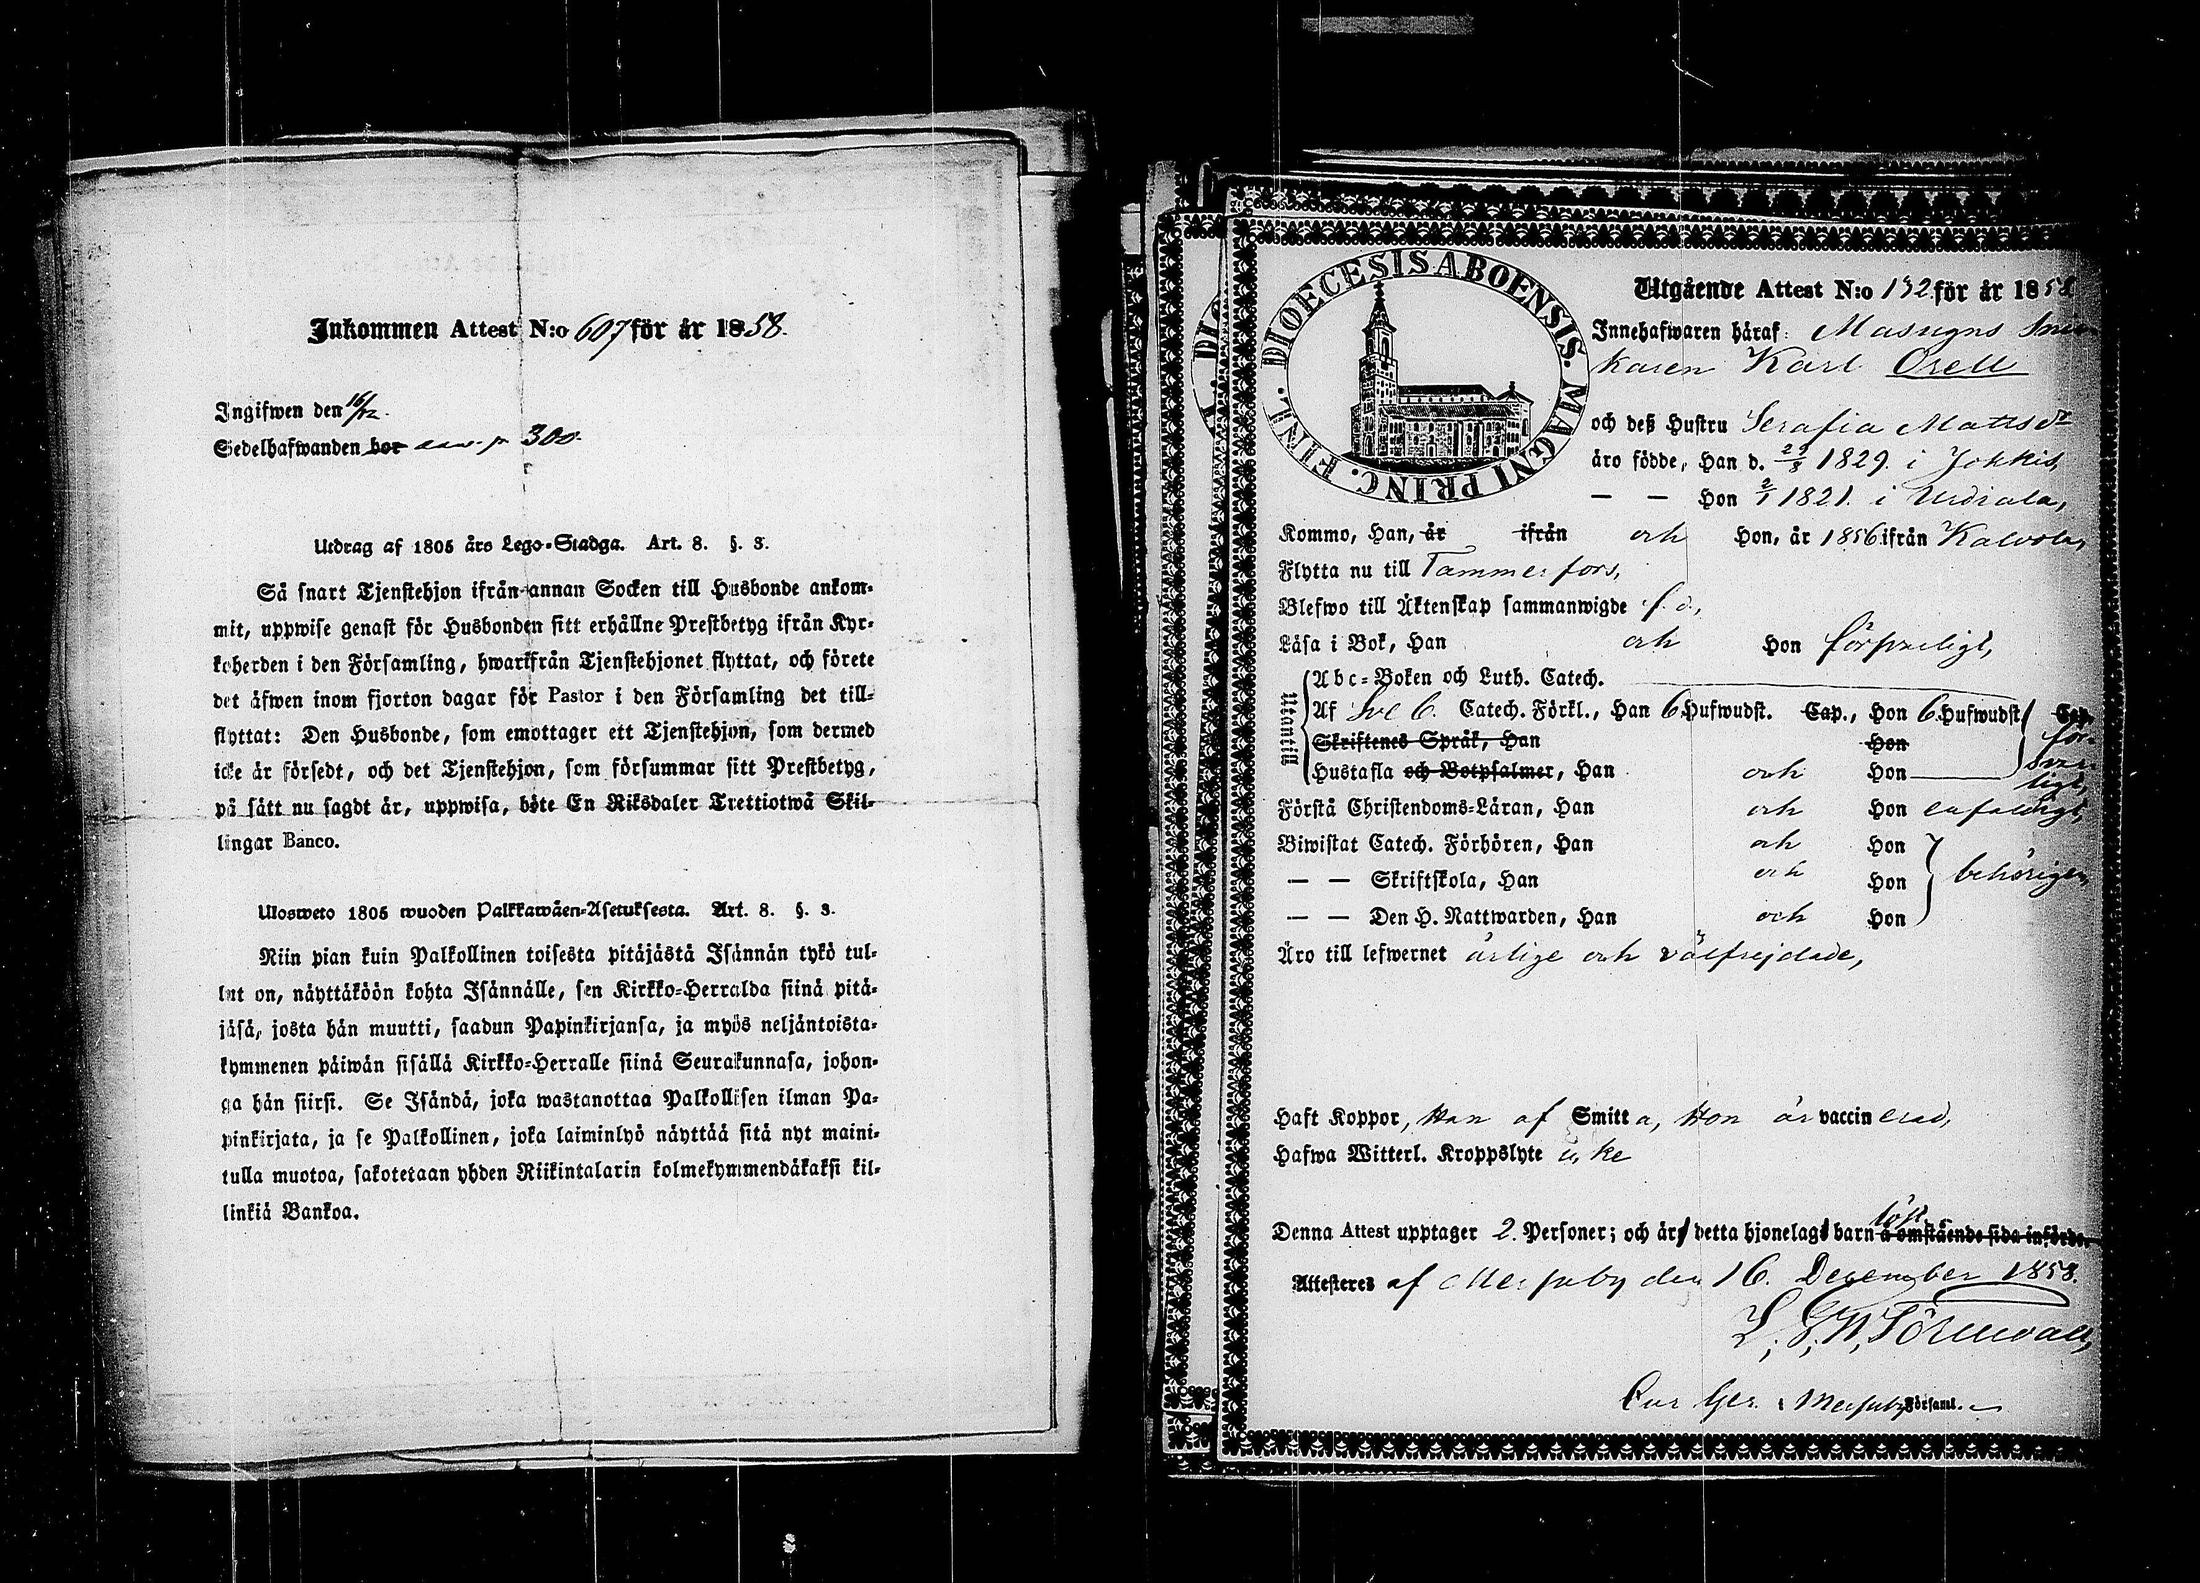 Inkommen Attest N:o 607 för år 1858.
Ingifwen den 16/12.
Sedelhafwanden bor 300.
Utdrag af 1805 års Lego-Stadga. Art. 8. §. 3.
Så snart Tjenstehjon ifrån annan Socken till Husbonde ankom-
mit, uppwise genast för Husbonden sitt erhållne Prestbetyg ifrån Kyr-
koherden i den Församling, hwarifrån Tjenstehjonet flyttat, och förete
det äfwen inom fjorton dagar för Pastor i den Församling det till-
flyttat: Den Husbonde, som emottager ett Tjenstehjon, som dermed
icke är försedt, och det Tjenstehjon, som försummar sitt Prestbetyg,
på sätt nu sagdt är, uppwisa, böte En Riksdaler Trettiotwå Skil-
lingar Banco.
Ulosweto 1805 wuoden Palkkawäen-Asetuksesta. Art. 8. §. 3.
Niin pian kuin Palkollinen toisesta pitäjästä Isännän tykö tul-
lut on, näyttäköön kohta Isännälle, sen Kirkko-Herralda siinä pitä-
jäsä, josta hän muutti, saadun Papinkirjansa, ja myös neljäntoista-
kymmenen päiwän sisällä Kirkko-Herralle siinä Seurakunnasa, johon-
ga hän siirsi. Se Isändä, joka wastanottaa Palkollisen ilman Pa-
pinkirjata, ja se Palkollinen, joka laiminlyö näyttää sitä nyt maini-
tulla muotoa, sakotetaan yhden Riikintalarin kolmekymmendäkaksi kil-
linkiä Bankoa.
DIOECESIS ABOENSIS. MAGNI PRINC. FINL.
Utgående Attest N:o 132 för år 1858
Innehafwaren häraf: Masugns
karen Karl Orell
och deß Hustru Serafia Mattsdr
äro födde, Han d. 29/8 1829. i Jokkis,
— — Hon 2/1 1821. i Urdiala,
Kommo, Han, år ifrån och Hon, år 1856 ifrån Kalvola,
Flytta nu till Tammerfors,
Blefwo till Äktenskap sammanwigde f. d.,
Läsa i Bok, Han och Hon försvarligt,
Utantill
Abc-Boken och Luth. Catech.
Af Sve C. Catech. Förkl., Han 6 Hufwudst. Cap., Hon 6. Hufwudst. Cap.
Skriftenes Språk, Han Hon för-
Hustafla och Botpsalmer, Han och Hon svar
ligt,
Förstå Christendoms-Läran, Han och Hon enfaldigt,
Biwistat Catech. Förhören, Han och Hon
— — Skriftskola, Han och Hon behörigen,
— — Den H. Nattwarden, Han och Hon
Äro till lefwernet ärlige och välfrejdade,
Haft Koppor, Han af Smitta, Hon är vaccinerad,
Hafwa Witterl. Kroppslyte icke
Denna Attest upptager 2. Personer; och är detta hjonelag barn å omstående sida införde. löst
Attesteres af Merjerby den 16. December 1858.
Församl.